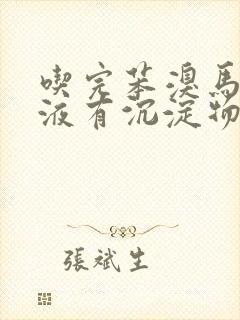 喫完苯溴馬
液有沉淀物
張斌生